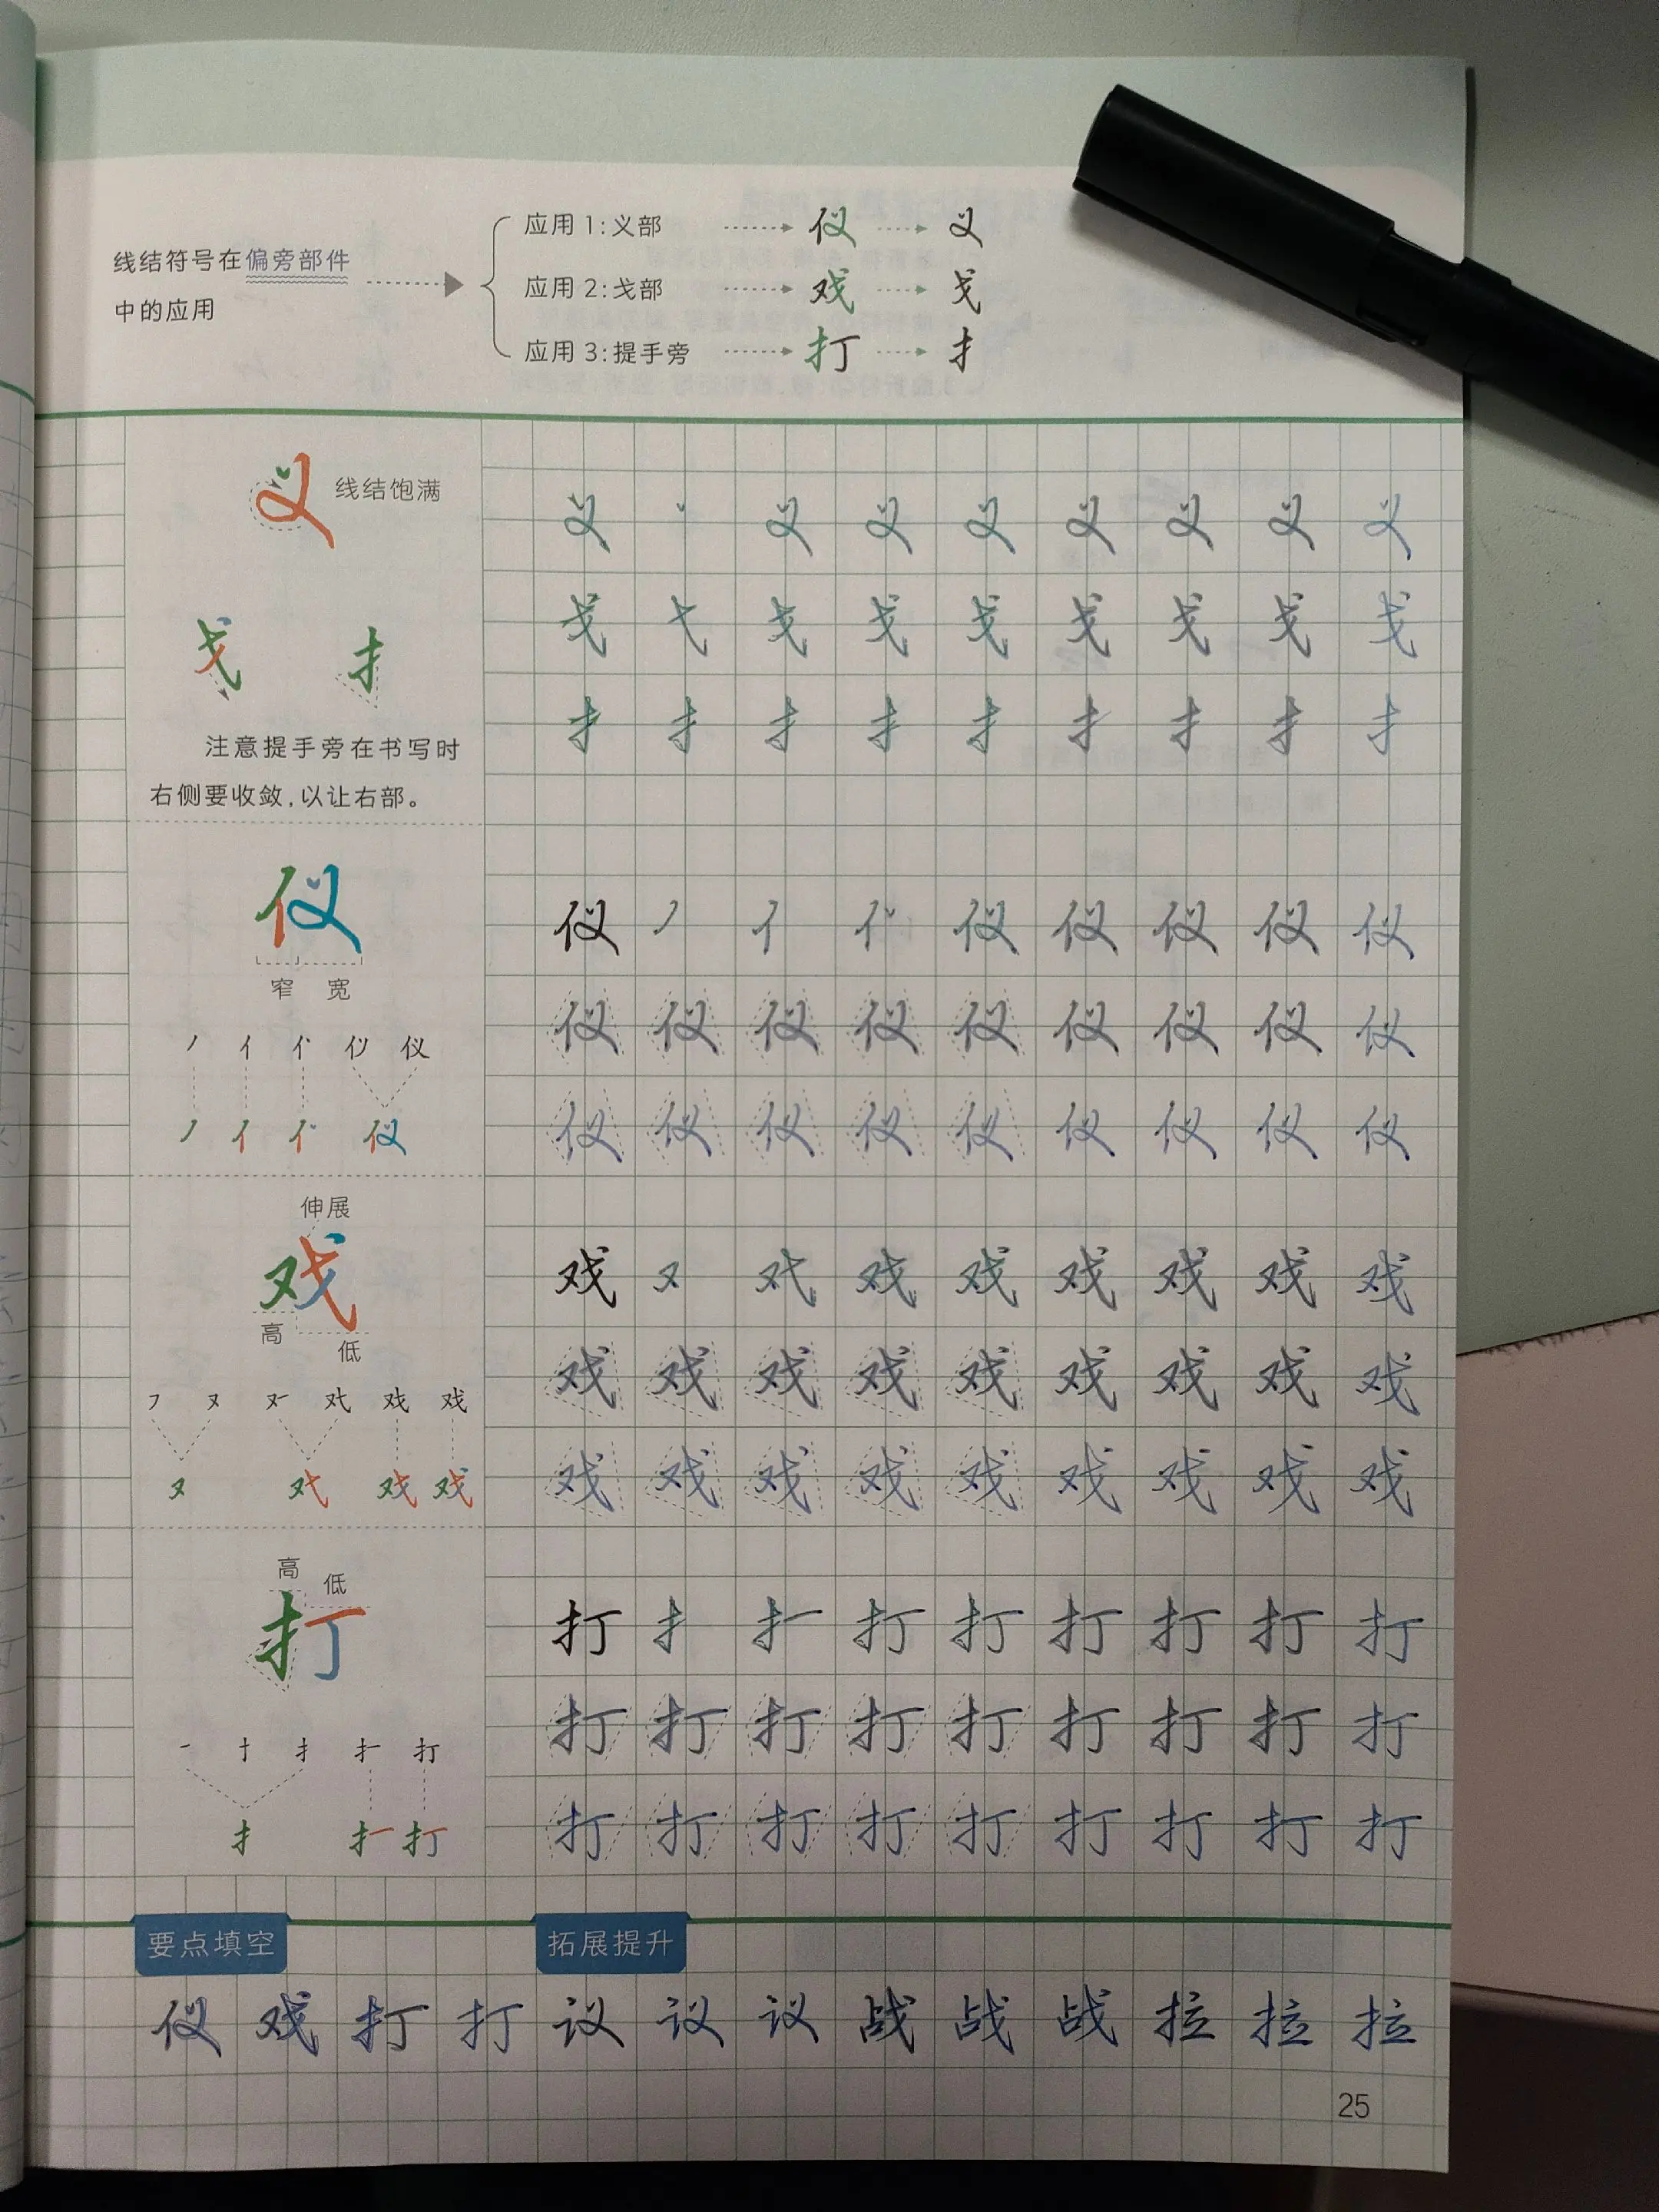 线结符号在偏旁部件
中的应用
应用1:义部 仪 义
应用2:戈部 戏 戈
应用3:提手旁 打 扌
义 线结饱满
戈 扌
注意提手旁在书写时
右侧要收敛,以让右部。
义 丶 义 义 义 义 义 义 义
戈 弋 戈 戈 戈 戈 戈 戈 戈
扌 扌 扌 扌 扌 扌 扌 扌 扌
仪
窄 宽
丿 亻 仪
丿 亻 仪
仪 丿 亻 仪 仪 仪 仪 仪
仪 仪 仪 仪 仪 仪 仪 仪 仪
仪 仪 仪 仪 仪 仪 仪 仪 仪
伸展
戏
高
低
戏 戏
又 戏 戏
戏 又 戏 戏 戏 戏 戏 戏
戏 戏 戏 戏 戏 戏 戏 戏 戏
戏 戏 戏 戏 戏 戏 戏 戏 戏
高
低
打
一 扌 打
扌 打
打 扌 打 打 打 打 打 打
打 打 打 打 打 打 打 打 打
打 打 打 打 打 打 打 打 打
要点填空
仪 戏 打 打
拓展提升
议 议 议 战 战 战 拉 拉 拉
25